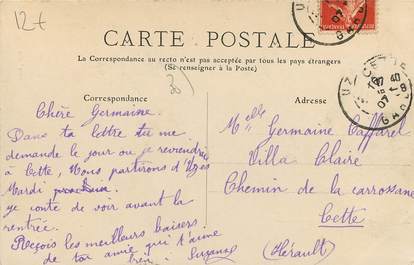 12+
CARTE POSTALE
La Correspondance au recto n'est pas acceptée par tous les pays étrangers
(Se renseigner à la Poste)
Correspondance
Chère Germaine.
Dans ta lettre tu me
demande le jour ou je reviendrai
à Cette, Nous partirons d'Uzès
Mardi
je conte de voir avant la
rentrée.
Reçois les meilleurs baisers
de ton amie qui t'aime
bien. Suzanne
Adresse
Melle Germaine Caffarel
Villa Claire
Chemin de la carrossane
Cette
(Hérault)
UZ
07
GARD